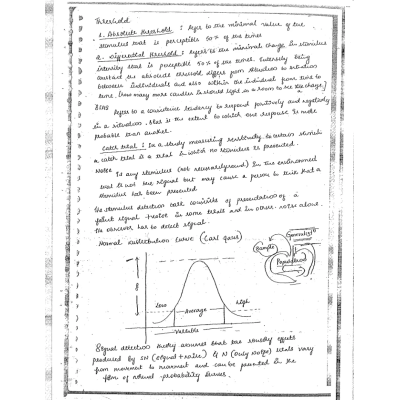 Threshold
1. Absolute threshold : refers to the minimal value of the
stimulus that is perceptible 50% of the times
2. Differential threshold : refers to the minimal change in stimulus
intensity that is perceptible 50% of the times. Intensity being
the absolute threshold differs from situation to situation
between individuals and also within the individual from time to
time. (How many more candles it should light in a room to see the change)
Bias
Refers to a consistent tendency to respond positively and negatively
in a situation. Bias is the extent to which one response is more
probable than another.
Catch trial : In a study measuring sensitivity to certain stimuli
a catch trial is a trial in which no stimulus is presented.
Noise is any stimulus (not in the environment
that is not the signal but may cause a person to think that a
stimulus has been presented
The stimulus detection task consists of presentation of a
faint signal + noise in some trials and in other noise alone.
The observer has to detect signal.
Normal distribution curve (Carl gauss)
Sample
Population
low
Average
High
Variable
Signal detection theory assumes that the sensory effects
produced by SN (signal + noise) & N (Only Noise) trials vary
from moment to moment and can be presented in the
form of normal probability curves.